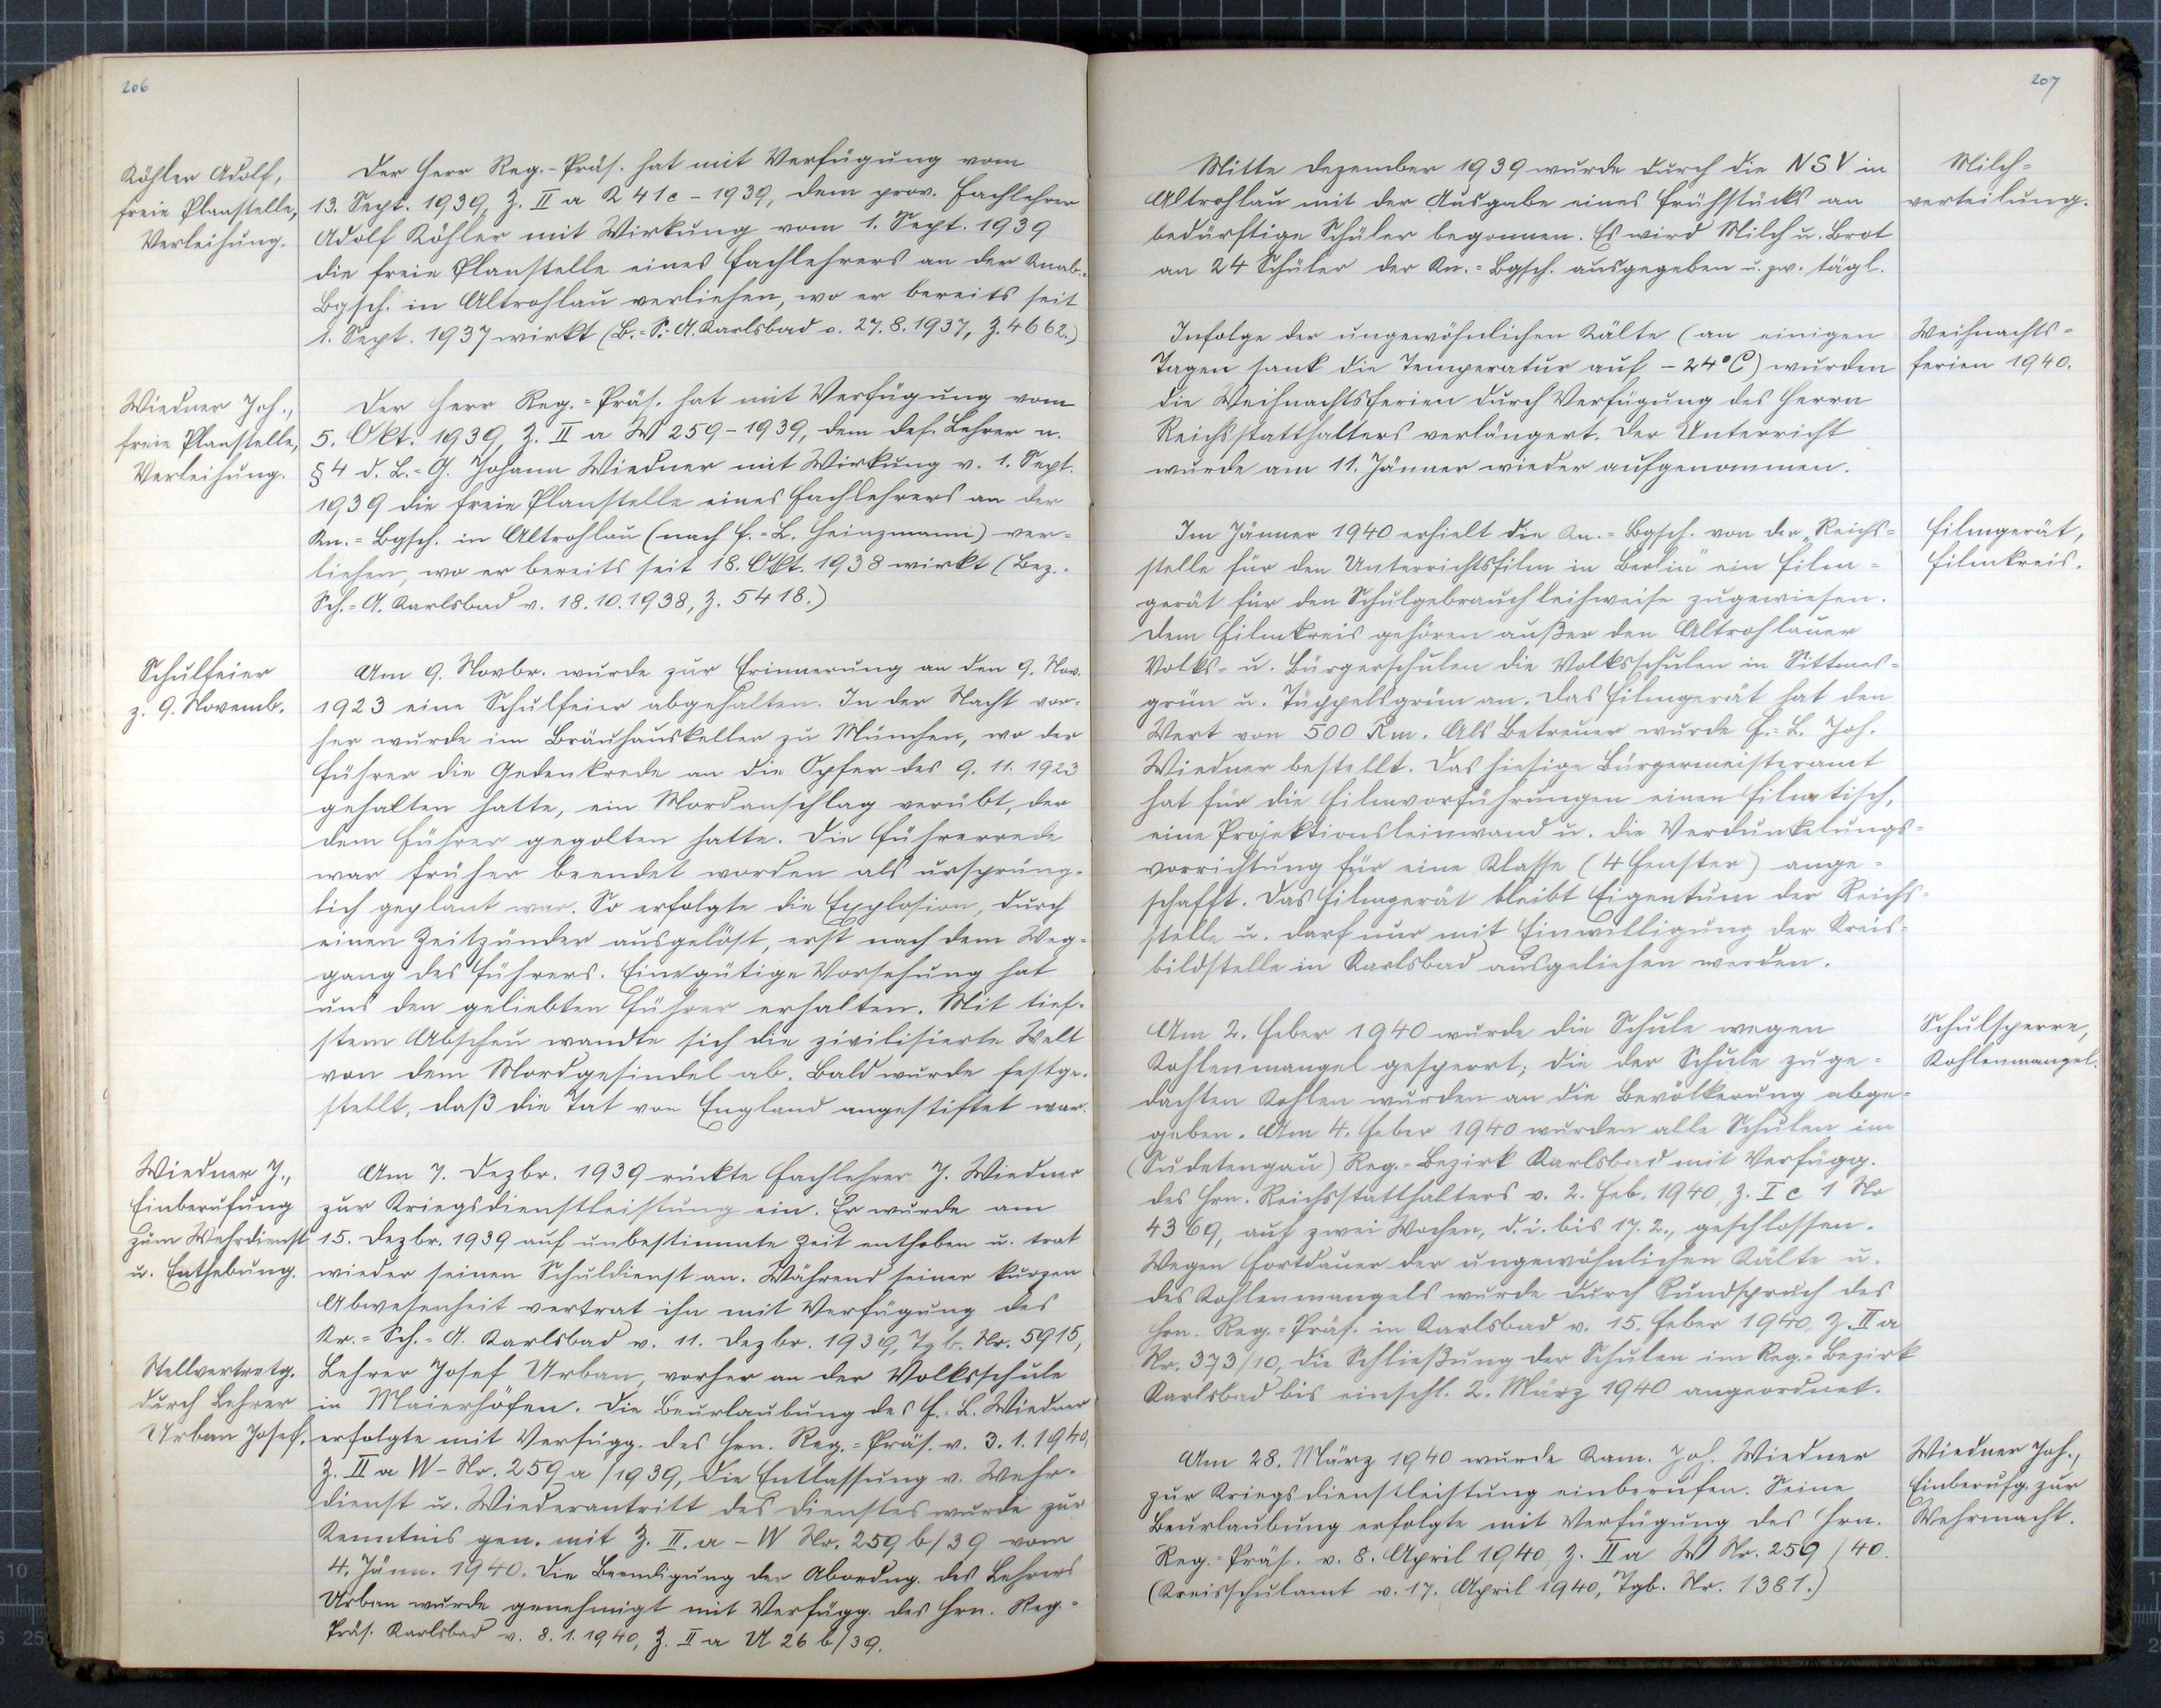 206
Köhler Adolf,
freie Planstelle,
Verleihung.
Der Herr Reg.-Präs. hat mit Verfügung vom
13. Sept. 1939, Z. II a K 41c - 1939, dem prov. Fachlehrer
Adolf Köhler mit Wirkung vom 1. Sept. 1939
die freie Planstelle eines Fachlehrers an der Knab.-
Bgsch. in Altrohlau verliehen, wo er bereits seit
1. Sept. 1937 wirkt (B.=S.=A. Karlsbad v. 27.8.1937, Z. 4662.)
Wiedner Joh.,
freie Planstelle,
Verleihung.
Der Herr Reg.=Präs. hat mit Verfügung vom
5. Okt. 1939, Z. II a W 259-1939, dem def. Lehrer n.
§ 4 d. L.=G. Johann Wiedner mit Wirkung v. 1. Sept.
1939 die freie Planstelle eines Fachlehrers an der
Kn.=Bgsch. in Altrohlau (nach F.=L. Heinzmann) ver=
liehen, wo er bereits seit 18. Okt. 1938 wirkt (Bez.=
Sch.=A. Karlsbad v. 18.10.1938, Z. 5418.)
Schulfeier
z. 9. Novemb.
Am 9. Novbr. wurde zur Erinnerung an den 9. Nov.
1923 eine Schulfeier abgehalten. In der Nacht vor=
her wurde im Bräuhauskeller zu München, wo der
Führer die Gedenkrede an die Opfer des 9. 11. 1923
gehalten hatte, ein Mordanschlag verübt, der
dem Führer gegolten hatte. Die Führerrede
war früher beendet worden als ursprüng=
lich geplant war. So erfolgte die Explosion, durch
einen Zeitzünder ausgelöst, erst nach dem Weg=
gang des Führers. Eine gütige Vorsehung hat
uns den geliebten Führer erhalten. Mit tief=
stem Abscheu wandte sich die zivilisierte Welt
von dem Mordgesindel ab. Bald wurde festge=
stellt, daß die Tat von England angestiftet war.
Wiedner J.,
Einberufung
zum Wehrdienst
u. Enthebung.
Am 7. Dezbr. 1939 rückte Fachlehrer J. Wiedner
zur Kriegsdienstleistung ein. Er wurde am
15. Dezbr. 1939 auf unbestimmte Zeit enthoben u. trat
wieder seinen Schuldienst an. Während seiner kurzen
Abwesenheit vertrat ihn mit Verfügung des
Kr.=Sch.=A. Karlsbad v. 11. Dezbr. 1939, Tgb. Nr. 5915,
Stellvertretg.
durch Lehrer
Urban Josef.
Lehrer Josef Urban, vorher an der Volksschule
in Maierhöfen. Die Beurlaubung des F.=L. Wiedner
erfolgte mit Verfügg. des Hrn. Reg.=Präs. v. 3.1.1940,
Z. II a W-Nr. 259 a/1939, die Entlassung v. Wehr=
dienst u. Wiederantritt des Dienstes wurde zur
Kenntnis gen. mit Z. II. a - W Nr. 259 b/39 vom
4. Jänn. 1940. Die Beendigung der Abordng. des Lehrers
Urban wurde genehmigt mit Verfügg. des Hrn. Reg.=
Präs. Karlsbad v. 8.1.1940, Z. II a U 26 b/39.
207
Mitte Dezember 1939 wurde durch die NSV in
Altrohlau mit der Ausgabe eines Frühstücks an
bedürftige Schüler begonnen. Es wird Milch u. Brot
an 24 Schüler der Kn.=Bgsch. ausgegeben u. zw. tägl.
Milch=
verteilung.
Infolge der ungewöhnlichen Kälte (an einigen
Tagen sank die Temperatur auf - 24°C) wurden
die Weihnachtsferien durch Verfügung des Herrn
Reichsstatthalters verlängert. Der Unterricht
wurde am 11. Jänner wieder aufgenommen.
Weihnachts=
ferien 1940.
Im Jänner 1940 erhielt die Kn.=Bgsch. von der „Reichs=
stelle für den Unterrichtsfilm in Berlin" ein Film=
gerät für den Schulgebrauch leihweise zugewiesen.
Dem Filmkreis gehören außer den Altrohlauer
Volks- u. Bürgerschulen die Volksschulen in Sittmes=
grün u. Tüppelsgrün an. Das Filmgerät hat den
Wert von 500 Rm. Als Betreuer wurde F.=L. Joh.
Wiedner bestellt. Das hiesige Bürgermeisteramt
hat für die Filmvorführungen einen Filmtisch,
eine Projektionsleinwand u. die Verdunkelungs=
vorrichtung für eine Klasse (4 Fenster) ange=
schafft. Das Filmgerät bleibt Eigentum der Reichs=
stelle u. darf nur mit Einwilligung der Kreis=
bildstelle in Karlsbad ausgeliehen werden.
Filmgerät,
Filmkreis.
Am 2. Feber 1940 wurde die Schule wegen
Kohlenmangel gesperrt; die der Schule zuge=
dachten Kohlen wurden an die Bevölkerung abge=
geben. Am 4. Feber 1940 wurden alle Schulen im
(Sudetengau) Reg.=Bezirk Karlsbad mit Verfügg.
des Hrn. Reichsstatthalters v. 2. Feb. 1940, Z. I c 1 Nr
4369, auf zwei Wochen, d.i. bis 17.2., geschlossen.
Wegen Fortdauer der ungewöhnlichen Kälte u.
des Kohlenmangels wurde durch Rundspruch des
Hrn. Reg.=Präs. in Karlsbad v. 15. Feber 1940, Z. II a
Nr. 373/10, die Schließung der Schulen im Reg.=Bezirk
Karlsbad bis einschl. 2. März 1940 angeordnet.
Schulsperre,
Kohlenmangel.
Am 28. März 1940 wurde Kam. Joh. Wiedner
zur Kriegsdienstleistung einberufen. Seine
Beurlaubung erfolgte mit Verfügung des Hrn.
Reg.=Präs. v. 8. April 1940, Z. II a W Nr. 259/40.
(Kreisschulamt v. 17. April 1940, Tgb. Nr. 1381.)
Wiedner Joh.,
Einberufg. zur
Wehrmacht.